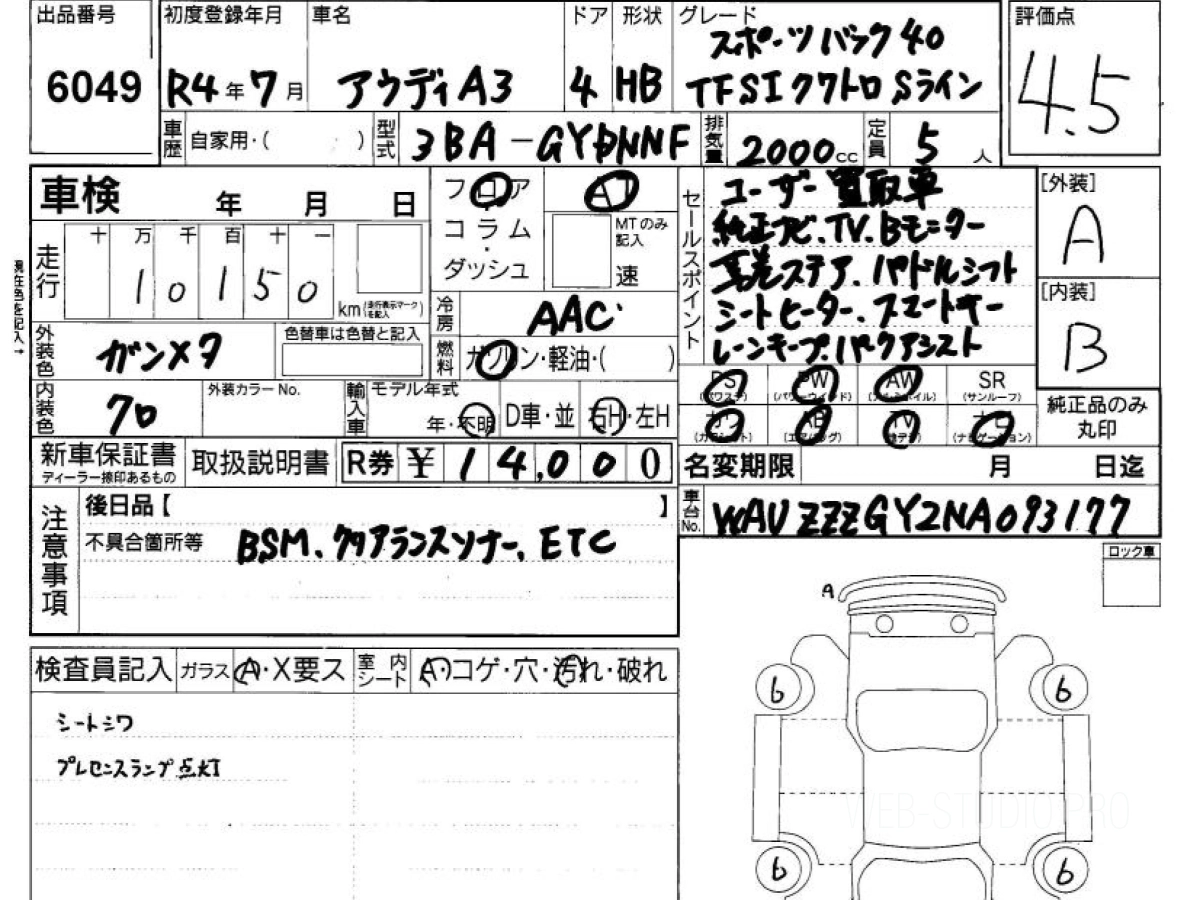 出品番号 初度登録年月 車名 ドア 形状 グレード 評価点
スポーツバック40
6049 R4年7月 アウディA3 4 HB TFSIクワトロSライン
4.5
車歴 自家用・( ) 型式 3BA-GYDNNF 排気量 2000cc 定員 5人
車検 年 月 日
フロア AT
コラム
・
ダッシュ
MTのみ記入
速
走行 十 万 千 百 十 一
10150 km (走行表示マークを記入)
現在色を記入→
冷房 AAC
外装色 ガンメタ
色替車は色替と記入
燃料 ガソリン・軽油・( )
内装色 クロ
外装カラーNo.
輸入車 モデル年式
年・不明 D車・並 右H・左H
新車保証書
ディーラー捺印あるもの
取扱説明書 R券 ¥14,000
セールスポイント
ユーザー買取車
純正ナビ、TV、Bモニター
革巻ステア、パドルシフト
シートヒーター、スマートキー
レーンキープ、パークアシスト
[外装]
A
[内装]
B
PS PW AW SR
(パワステ) (パワーウィンド) (アルミホイル) (サンルーフ)
カワ AB TV ナビ
(カワシート) (エアバッグ) (地デジ) (ナビゲーション)
純正品のみ
丸印
名変期限 月 日迄
車台No. WAUZZZGY2NA093177
注意事項
後日品【 】
不具合箇所等 BSM、クリアランスソナー、ETC
ロック車
A
検査員記入 ガラス A・X要ス 室内シート A・コゲ・穴・汚れ・破れ
シートシワ
プレセンスランプ点灯
6 6
6 6
WEB-STUDIO PRO